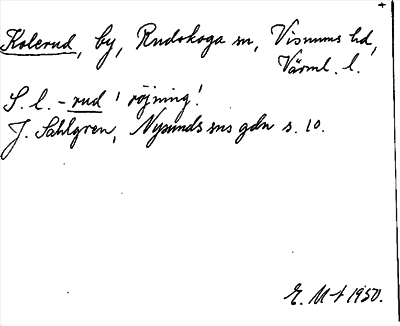 Kolerud, by, Rudskoga sn, Visnums hd,
Värml. l.
S. l. - rud 'röjning'.
J. Sahlgren, Nysunds sns gdn s. 10.
E. M-t 1950.